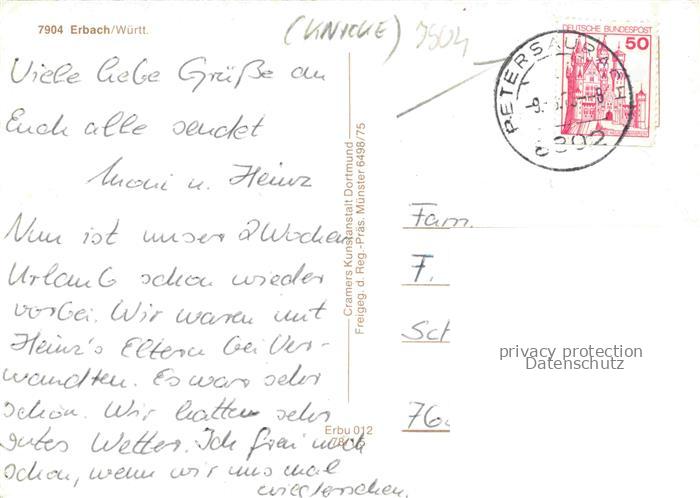 7904 Erbach/Württ.
(KNICKE) 7904
DEUTSCHE BUNDESPOST
50
PETERSAURACH
8802
Viele liebe Grüße an
Euch alle sendet
Moni u. Heinz
Nun ist unser 2 Wochen
Urlaub schon wieder
vorbei. Wir waren mit
Heinz's Eltern bei Ver-
wandten. Es war sehr
schön. Wir hatten sehr
gutes Wetter. Ich freu mich
schon, wenn wir uns mal
wiedersehen.
Cramers Kunstanstalt Dortmund
Freigeg. d. Reg.-Präs. Münster 6498/75
Erbu 012
Fam.
F.
Sct
76
privacy protection
Datenschutz